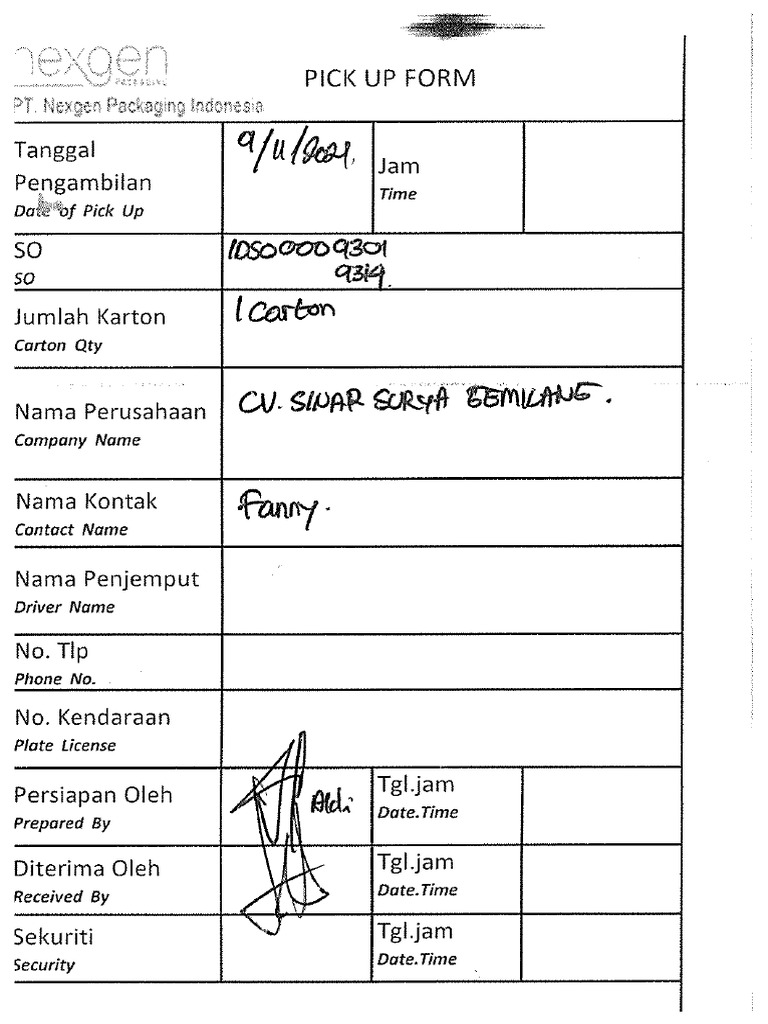 nexgen
PACKAGING
PICK UP FORM
PT. Nexgen Packaging Indonesia
Tanggal
Pengambilan
Date of Pick Up
9/11/2021.
Jam
Time
SO
SO
IDSO00009301
9319.
Jumlah Karton
Carton Qty
1 Carton
Nama Perusahaan
Company Name
CV. SINAR SURYA GEMILANG.
Nama Kontak
Contact Name
Fanny.
Nama Penjemput
Driver Name
No. Tlp
Phone No.
No. Kendaraan
Plate License
Persiapan Oleh
Prepared By
Aldi
Tgl.jam
Date.Time
Diterima Oleh
Received By
Tgl.jam
Date.Time
Sekuriti
Security
Tgl.jam
Date.Time